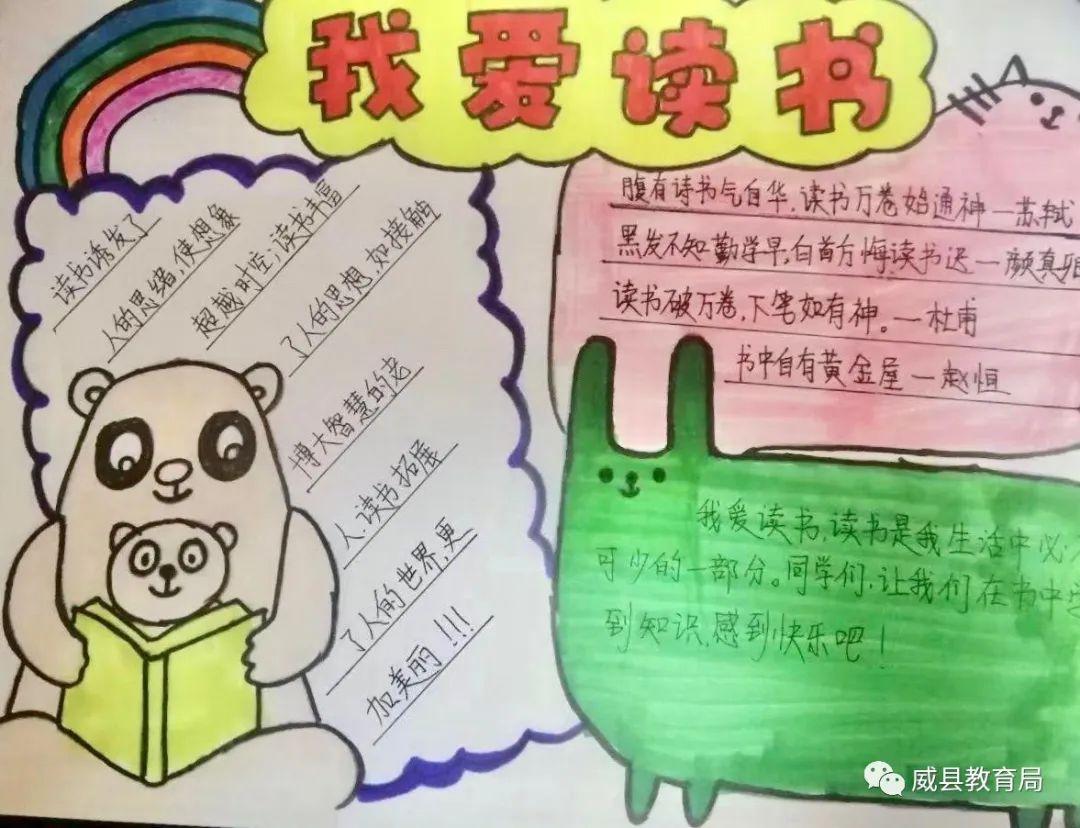 我爱读书
读书诱发了
人的思绪,使想象
超越时空;读书丰富
了人的思想,如接触
博大智慧的老
人;读书拓展
了人的世界,更
加美丽!!!
腹有诗书气自华,读书万卷始通神—苏轼
黑发不知勤学早,白首方悔读书迟—颜真
读书破万卷,下笔如有神。—杜甫
书中自有黄金屋—赵恒
我爱读书,读书是我生活中必
可少的一部分。同学们,让我们在书中
到知识,感到快乐吧!
威县教育局